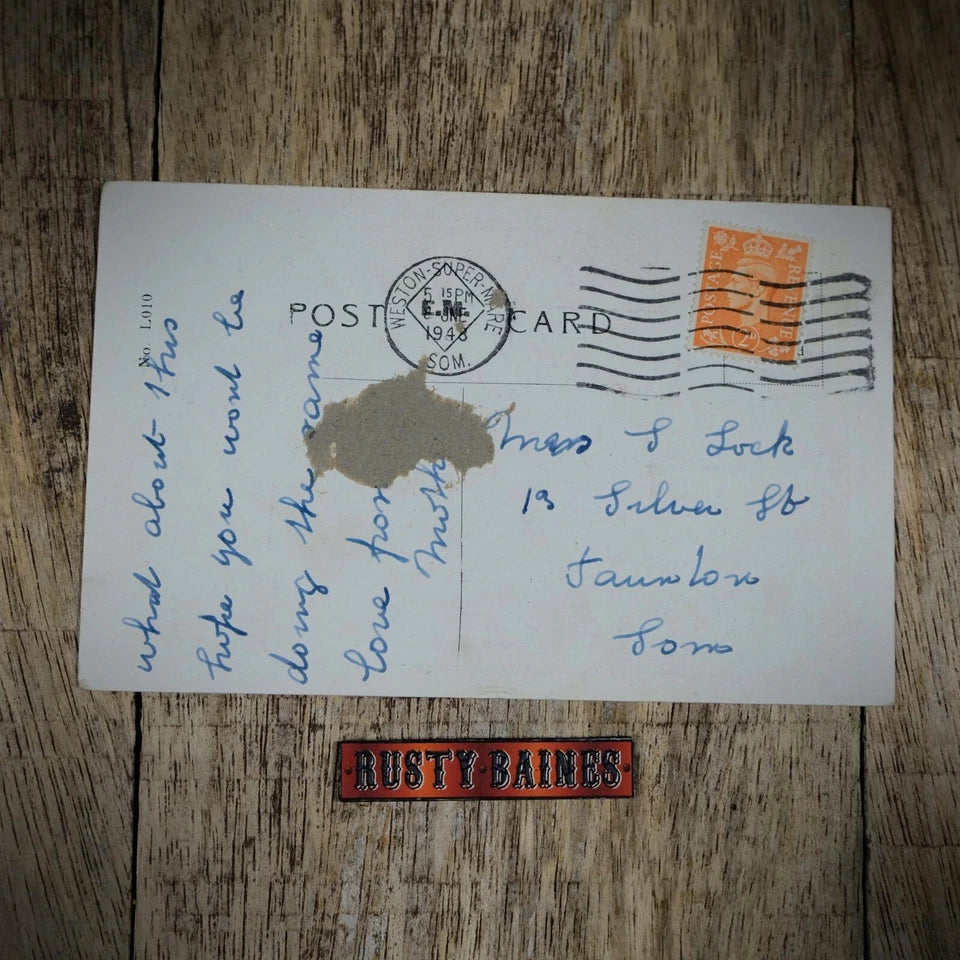 POST CARD
No. L010
WESTON-SUPER-MARE
5 15PM
E.M.
JNE
1948
SOM.
POSTAGE
REVENUE
2D
what about this
hope you wont be
doing the same
love from
Moth
S Lock
19 Silver St
Taunton
Som
RUSTY·BAINES